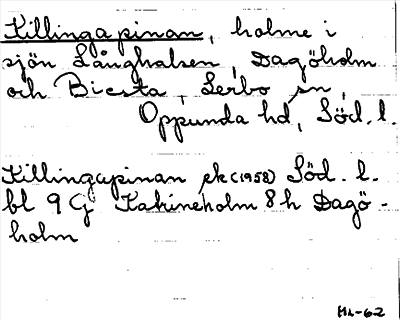 Killingapinan, holme i
sjön Långhalsen, Dagöholm
och Biesta, Lerbo sn,
Oppunda hd, Söd. l.
Killingapinan ek (1958) Söd. l.
bl 9 G Katrineholm 8 h Dagö-
holm
HL-62